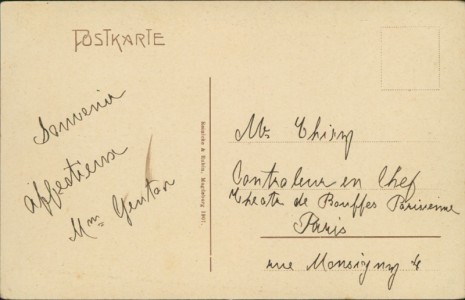 POSTKARTE
Souvenir
affectieux
Mme Gustav
Reinicke & Rubin, Magdeburg 1901.
Mr Thiry
Controleur en Chef
Theatre de Bouffes Parisienne
Paris
rue Monsigny 4